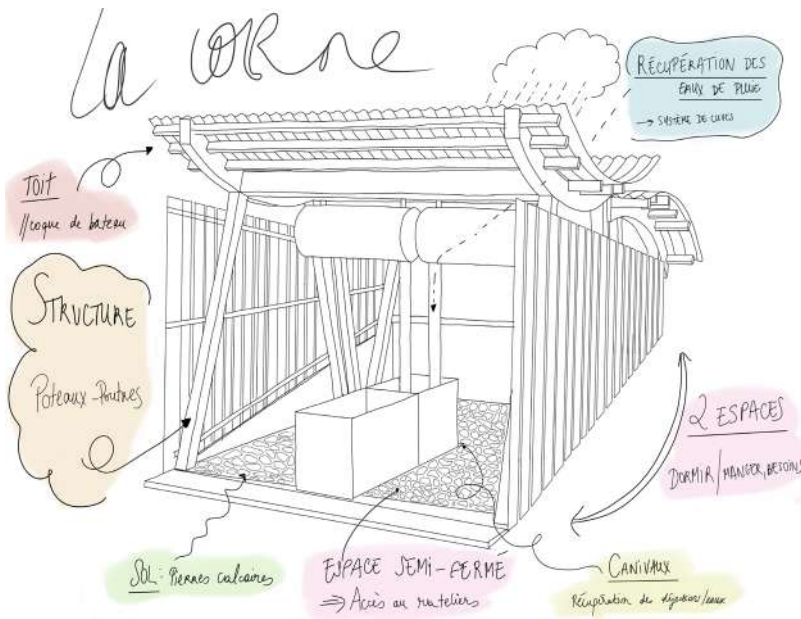 La CORNE
RÉCUPÉRATION DES
EAUX DE PLUIE
→ SYSTÈME DE CUVES
TOIT
//coque de bateau
STRUCTURE
Poteaux-Poutres
2 ESPACES
DORMIR/MANGER, BESOINS
SOL: Pierres calcaires
ESPACE SEMI-FERMÉ
⇒ Accès au rateliers
CANIVAUX
Récupération de déjections/eaux